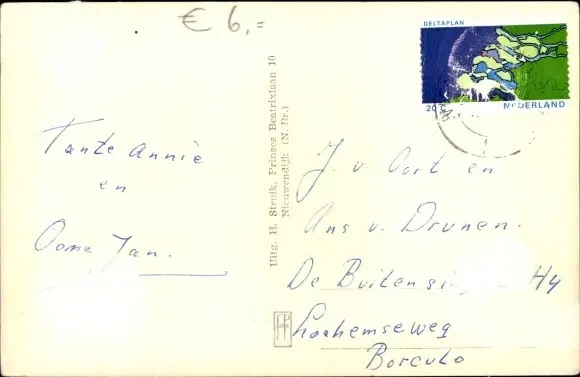 € 6,=
DELTAPLAN
20
NEDERLAND
Tante Annie
en
Oome Jan.
Uitg. H. Struik, Prinses Beatrixlaan 10
Nieuwendijk (N. Br.)
J. v. Oort en
Ans v. Drunen.
De Buitensin Hy
Lochemseweg
Borculo